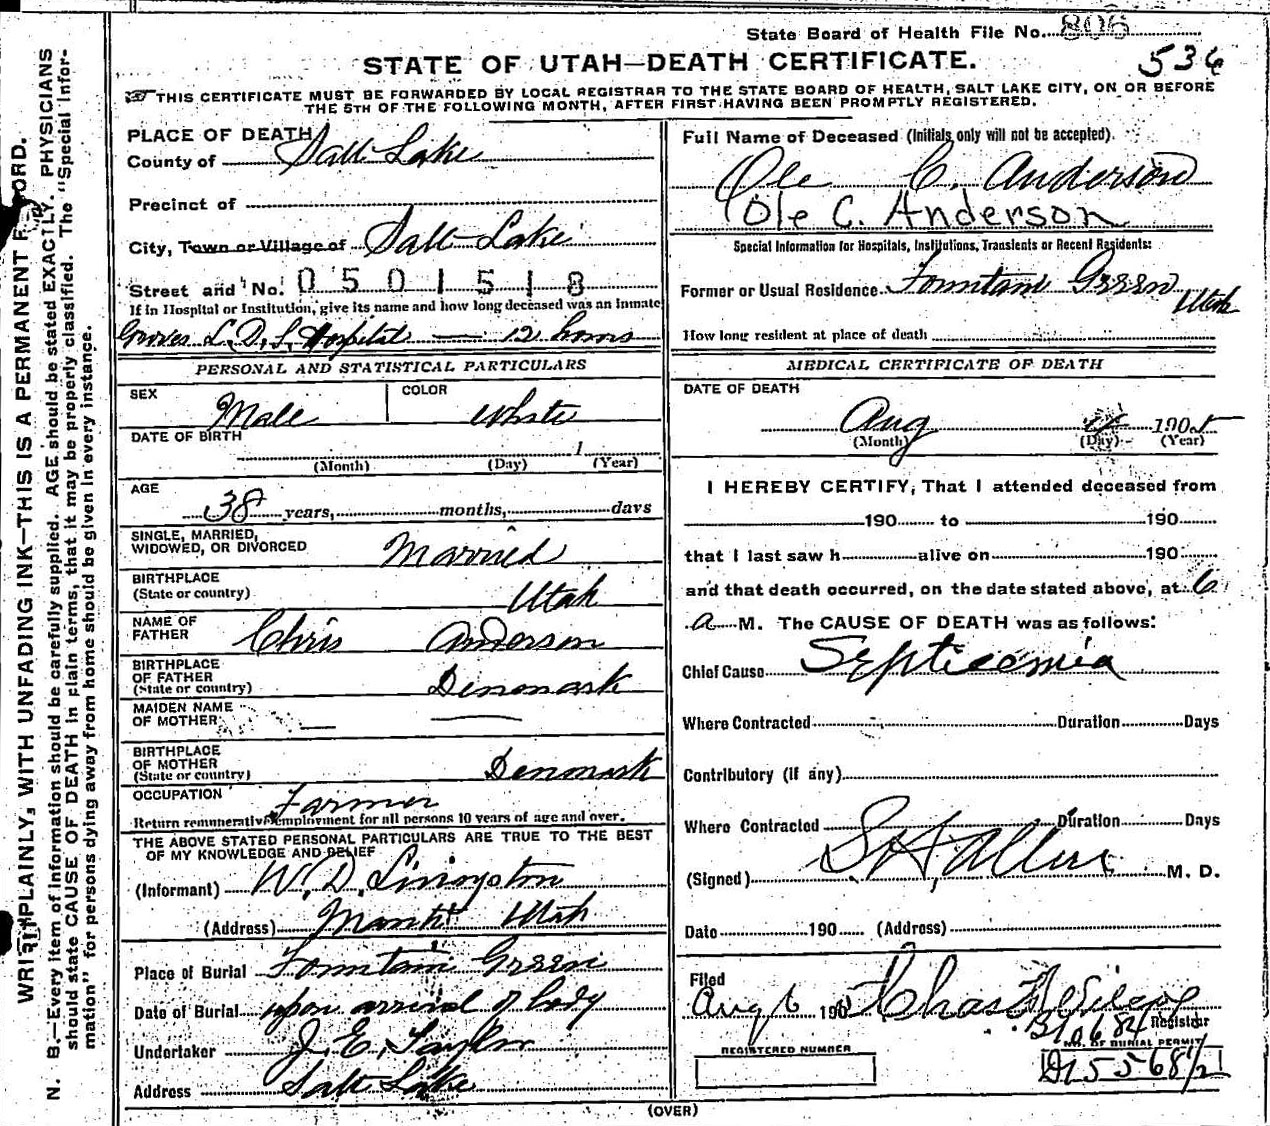 State Board of Health File No. 806
536
STATE OF UTAH—DEATH CERTIFICATE.
THIS CERTIFICATE MUST BE FORWARDED BY LOCAL REGISTRAR TO THE STATE BOARD OF HEALTH, SALT LAKE CITY, ON OR BEFORE
THE 5TH OF THE FOLLOWING MONTH, AFTER FIRST HAVING BEEN PROMPTLY REGISTERED.
WRITE PLAINLY, WITH UNFADING INK—THIS IS A PERMANENT
N. B.—Every item of information should be carefully supplied. AGE should be stated EXACTLY. PHYSICIANS
should state CAUSE OF DEATH in plain terms, that it may be properly classified. The "Special Infor-
mation" for persons dying away from home should be given in every instance.
PLACE OF DEATH
County of Salt Lake
Precinct of
City, Town or Village of Salt Lake
Street and No. 0501518
If in Hospital or Institution, give its name and how long deceased was an inmate
Groves L.D.S. Hospital — 12 hours
PERSONAL AND STATISTICAL PARTICULARS
SEX Male
COLOR White
DATE OF BIRTH
1
(Month) (Day) (Year)
AGE
38 years, months, days
SINGLE, MARRIED,
WIDOWED, OR DIVORCED Married
BIRTHPLACE
(State or country) Utah
NAME OF
FATHER Chris Anderson
BIRTHPLACE
OF FATHER
(State or country) Denmark
MAIDEN NAME
OF MOTHER — —
BIRTHPLACE
OF MOTHER
(State or country) Denmark
OCCUPATION Farmer
Return remunerative employment for all persons 10 years of age and over.
THE ABOVE STATED PERSONAL PARTICULARS ARE TRUE TO THE BEST
OF MY KNOWLEDGE AND BELIEF
(Informant) W. D. Livingston
(Address) Manti Utah
Place of Burial Fountain Green
Date of Burial upon arrival of body
Undertaker J. E. Taylor
Address Salt Lake
Full Name of Deceased (Initials only will not be accepted).
Ole C. Anderson
Ole C. Anderson
Special Information for Hospitals, Institutions, Transients or Recent Residents:
Former or Usual Residence Fountain Green
Utah
How long resident at place of death
MEDICAL CERTIFICATE OF DEATH
DATE OF DEATH
Aug 1905
(Month) (Day) (Year)
I HEREBY CERTIFY, That I attended deceased from
190 to 190
that I last saw h alive on 190
and that death occurred, on the date stated above, at 6
a M. The CAUSE OF DEATH was as follows:
Chief Cause Septicemia
Where Contracted Duration Days
Contributory (if any)
Where Contracted Duration Days
(Signed) S H Allen M. D.
Date 190 (Address)
Filed
Aug 6 190 Chas
Registrar
B 10684
NO. OF BURIAL PERMIT
REGISTERED NUMBER
(OVER)